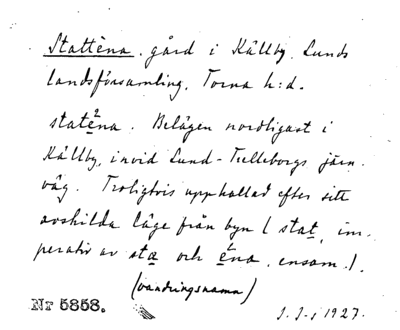 Stattèna, gård i Källby, Lunds
landsförsamling, Torna h:d.
statèna. Belägen nordligast i
Källby, invid Lund-Trelleborgs järn-
väg. Troligtvis uppkallad efter sitt
avskilda läge från byn (stat, im-
perativ av sta och èna, ensam.).
(vandringsnamn)
Nr 5858.
J. J-i 1927.